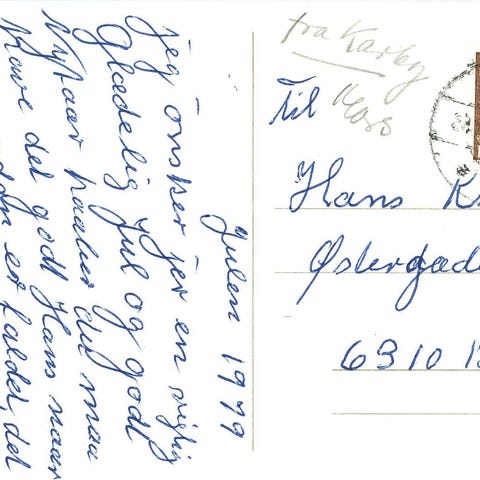 Julen 1979
jeg önsker jer en rigtig
Glædelig Jul og godt
Nytaar haaber du maa
Have det godt Hans naar
er faldet, det
fra Karby
Mors
Til
Hans K
Østergad
6310 B